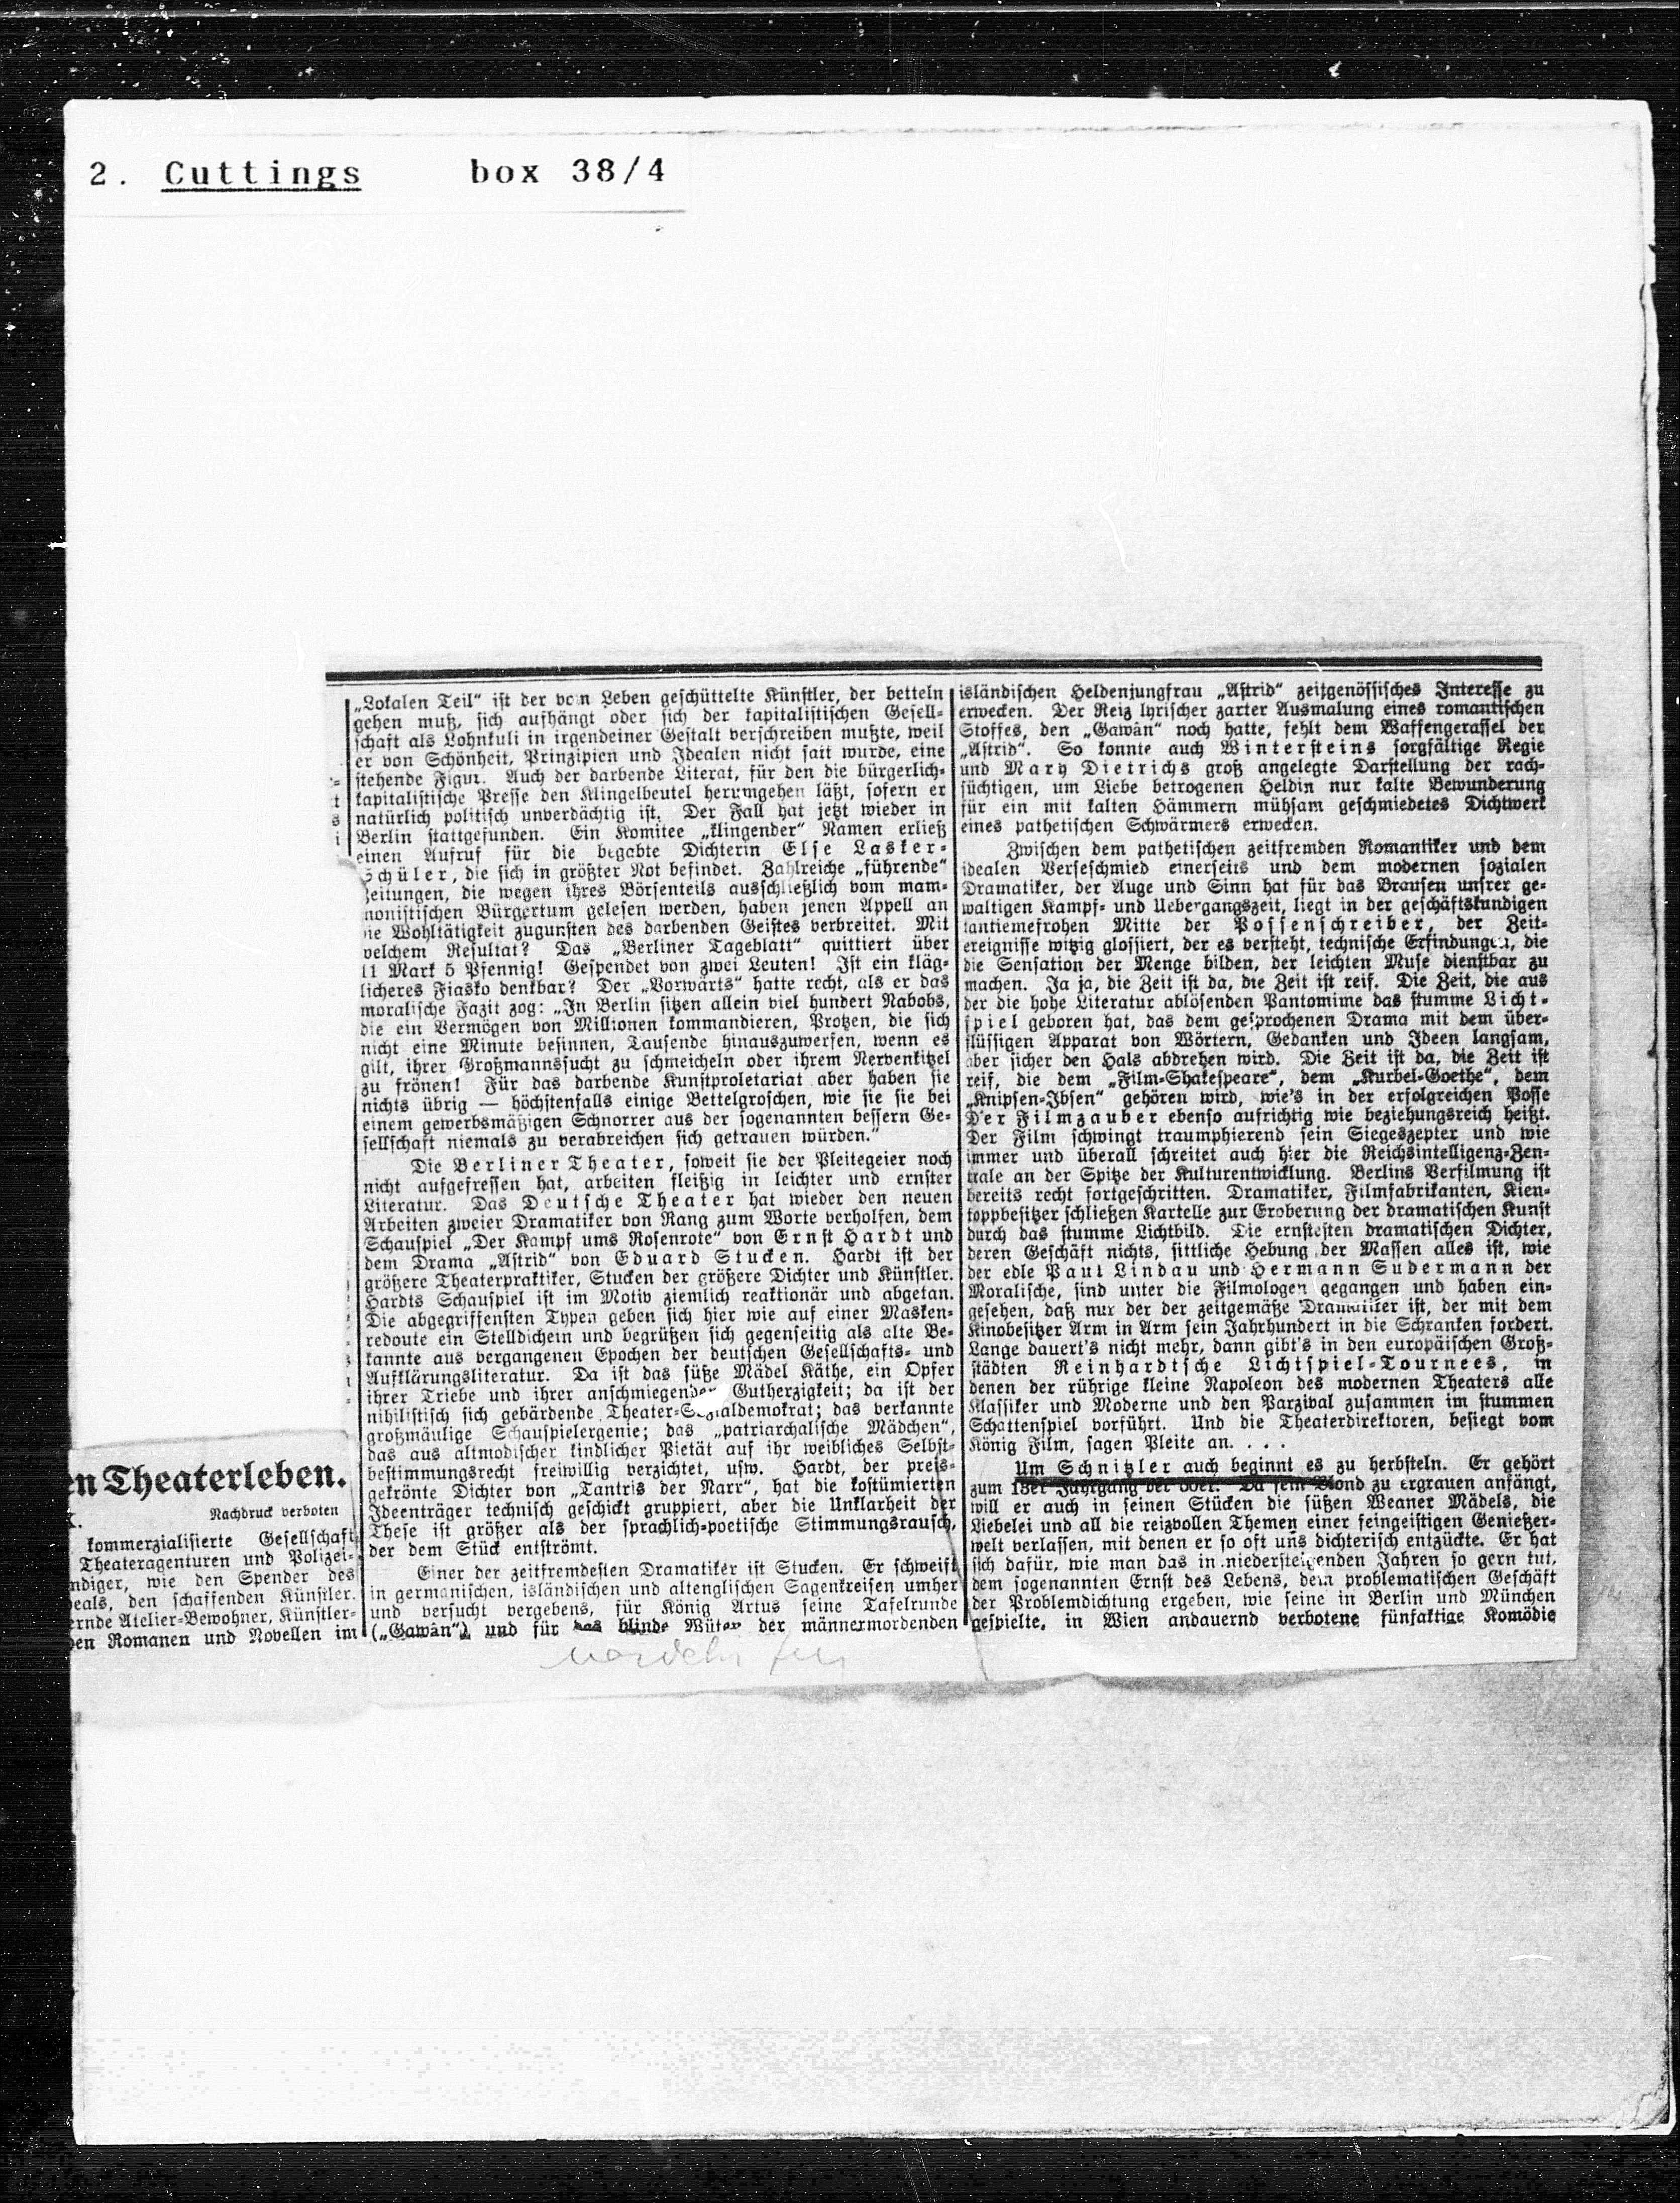 2. Cuttings box 38/4
en Theaterleben.
Nachdruck verboten
kommerzialisierte Gesellschaft
Theateragenturen und Polizei-
ndiger, wie den Spender des
eals, den schaffenden Künstler.
ernde Atelier-Bewohner, Künstler-
en Romanen und Novellen im
„Lokalen Teil“ ist der vom Leben geschüttelte Künstler, der betteln
gehen muß, sich aufhängt oder sich der kapitalistischen Gesell-
schaft als Lohnkuli in irgendeiner Gestalt verschreiben mußte, weil
er von Schönheit, Prinzipien und Idealen nicht satt wurde, eine
stehende Figur. Auch der darbende Literat, für den die bürgerlich-
kapitalistische Presse den Klingelbeutel herumgehen läßt, sofern er
natürlich politisch unverdächtig ist. Der Fall hat jetzt wieder in
Berlin stattgefunden. Ein Komitee „klingender“ Namen erließ
einen Aufruf für die begabte Dichterin Else Lasker-
Schüler, die sich in größter Not befindet. Zahlreiche „führende“
Zeitungen, die wegen ihres Börsenteils ausschließlich vom mam-
monistischen Bürgertum gelesen werden, haben jenen Appell an
die Wohltätigkeit zugunsten des darbenden Geistes verbreitet. Mit
welchem Resultat? Das „Berliner Tageblatt“ quittiert über
11 Mark 5 Pfennig! Gespendet von zwei Leuten! Ist ein kläg-
licheres Fiasko denkbar? Der „Vorwärts“ hatte recht, als er das
moralische Fazit zog: „In Berlin sitzen allein viel hundert Nabobs,
die ein Vermögen von Millionen kommandieren, Protzen, die sich
nicht eine Minute besinnen, Tausende hinauszuwerfen, wenn es
gilt, ihrer Großmannssucht zu schmeicheln oder ihrem Nervenkitzel
zu frönen! Für das darbende Kunstproletariat aber haben sie
nichts übrig — höchstenfalls einige Bettelgroschen, wie sie sie bei
einem gewerbsmäßigen Schnorrer aus der sogenannten bessern Ge-
sellschaft niemals zu verabreichen sich getrauen würden.“
Die Berliner Theater, soweit sie der Pleitegeier noch
nicht aufgefressen hat, arbeiten fleißig in leichter und ernster
Literatur. Das Deutsche Theater hat wieder den neuen
Arbeiten zweier Dramatiker von Rang zum Worte verholfen, dem
Schauspiel „Der Kampf ums Rosenrote“ von Ernst Hardt und
dem Drama „Astrid“ von Eduard Stucken. Hardt ist der
größere Theaterpraktiker, Stucken der größere Dichter und Künstler.
Hardts Schauspiel ist im Motiv ziemlich reaktionär und abgetan.
Die abgegriffensten Typen geben sich hier wie auf einer Masken-
redoute ein Stelldichein und begrüßen sich gegenseitig als alte Be-
kannte aus vergangenen Epochen der deutschen Gesellschafts- und
Aufklärungsliteratur. Da ist das süße Mädel Käthe, ein Opfer
ihrer Triebe und ihrer anschmiegenden Gutherzigkeit; da ist der
nihilistisch sich gebärdende Theater-Sozialdemokrat; das verkannte
großmäulige Schauspielergenie; das „patriarchalische Mädchen“,
das aus altmodischer kindlicher Pietät auf ihr weibliches Selbst-
bestimmungsrecht freiwillig verzichtet, usw. Hardt, der preis-
gekrönte Dichter von „Tantris der Narr“, hat die kostümierten
Ideenträger technisch geschickt gruppiert, aber die Unklarheit der
These ist größer als der sprachlich-poetische Stimmungsrausch,
der dem Stück entströmt.
Einer der zeitfremdesten Dramatiker ist Stucken. Er schweift
in germanischen, isländischen und altenglischen Sagenkreisen umher
und versucht vergebens, für König Artus seine Tafelrunde
(„Gawân“) und für das blinde Wüten der männermordenden
isländischen Heldenjungfrau „Astrid“ zeitgenössisches Interesse zu
erwecken. Der Reiz lyrischer zarter Ausmalung eines romantischen
Stoffes, den „Gawân“ noch hatte, fehlt dem Waffengerassel der
„Astrid“. So konnte auch Wintersteins sorgfältige Regie
und Mary Dietrichs groß angelegte Darstellung der rach-
süchtigen, um Liebe betrogenen Heldin nur kalte Bewunderung
für ein mit kalten Hämmern mühsam geschmiedetes Dichtwerk
eines pathetischen Schwärmers erwecken.
Zwischen dem pathetischen zeitfremden Romantiker und dem
idealen Verseschmied einerseits und dem modernen sozialen
Dramatiker, der Auge und Sinn hat für das Brausen unsrer ge-
waltigen Kampf- und Uebergangszeit, liegt in der geschäftskundigen
tantiemefrohen Mitte der Possenschreiber, der Zeit-
ereignisse witzig glossiert, der es versteht, technische Erfindungen, die
die Sensation der Menge bilden, der leichten Muse dienstbar zu
machen. Ja ja, die Zeit ist da, die Zeit ist reif. Die Zeit, die aus
der die hohe Literatur ablösenden Pantomime das stumme Licht-
spiel geboren hat, das dem gesprochenen Drama mit dem über-
flüssigen Apparat von Wörtern, Gedanken und Ideen langsam,
aber sicher den Hals abdrehen wird. Die Zeit ist da, die Zeit ist
reif, die dem „Film-Shakespeare“, dem „Kurbel-Goethe“, dem
„Knipsen-Ibsen“ gehören wird, wie's in der erfolgreichen Posse
Der Filmzauber ebenso aufrichtig wie beziehungsreich heißt.
Der Film schwingt traumphierend sein Siegeszepter und wie
immer und überall schreitet auch hier die Reichsintelligenz-Zen-
trale an der Spitze der Kulturentwicklung. Berlins Verfilmung ist
bereits recht fortgeschritten. Dramatiker, Filmfabrikanten, Kien-
toppbesitzer schließen Kartelle zur Eroberung der dramatischen Kunst
durch das stumme Lichtbild. Die ernstesten dramatischen Dichter,
deren Geschäft nichts, sittliche Hebung der Massen alles ist, wie
der edle Paul Lindau und Hermann Sudermann der
Moralische, sind unter die Filmologen gegangen und haben ein-
gesehen, daß nur der der zeitgemäße Dramatiker ist, der mit dem
Kinobesitzer Arm in Arm sein Jahrhundert in die Schranken fordert.
Lange dauert's nicht mehr, dann gibt's in den europäischen Groß-
städten Reinhardtsche Lichtspiel-Tournees, in
denen der rührige kleine Napoleon des modernen Theaters alle
Klassiker und Moderne und den Parzival zusammen im stummen
Schattenspiel vorführt. Und die Theaterdirektoren, besiegt vom
König Film, sagen Pleite an. . . .
Um Schnitzler auch beginnt es zu herbsteln. Er gehört
zum 18er Jahrgang der 60er. Da sein Blond zu ergrauen anfängt,
will er auch in seinen Stücken die süßen Weaner Mädels, die
Liebelei und all die reizvollen Themen einer feingeistigen Genießer-
welt verlassen, mit denen er so oft uns dichterisch entzückte. Er hat
sich dafür, wie man das in niedersteigenden Jahren so gern tut,
dem sogenannten Ernst des Lebens, dem problematischen Geschäft
der Problemdichtung ergeben, wie seine in Berlin und München
gespielte, in Wien andauernd verbotene fünfaktige Komödie